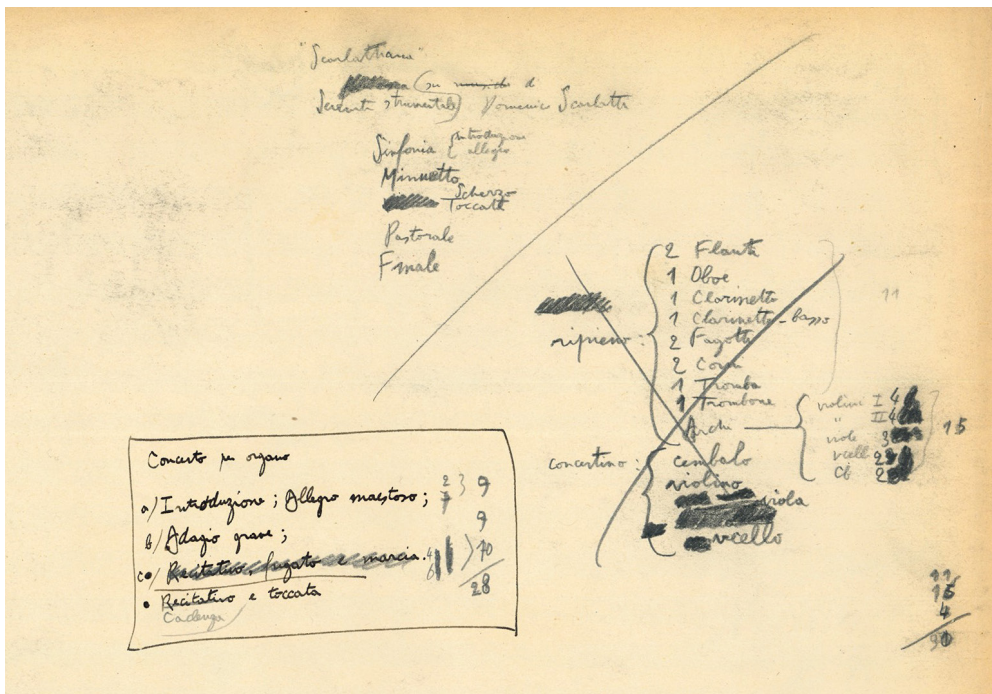 "Scarlattiana"
(su musiche di
Serenata strumentale) Domenico Scarlatti
Sinfonia { introduzione
allegro
Minuetto
Scherzo
Toccata
Pastorale
Finale
ripieno :
2 Flauti
1 Oboe
1 Clarinetto
1 Clarinetto-basso
2 Fagotti
2 Corni
1 Tromba
1 Trombone
Archi
11
violini I 4
" II 4
viole 3
vcelli 2
Cb 2
15
concertino :
cembalo
violino
viola
vcello
Concerto per organo
a/ Introduzione ; Allegro maestoso ; 2 7 } 9
b/ Adagio grave ; 9
c/ Recitativo, fugato e marcia. 4 6 } 10
28
Recitativo e toccata
Cadenza
11
15
4
30